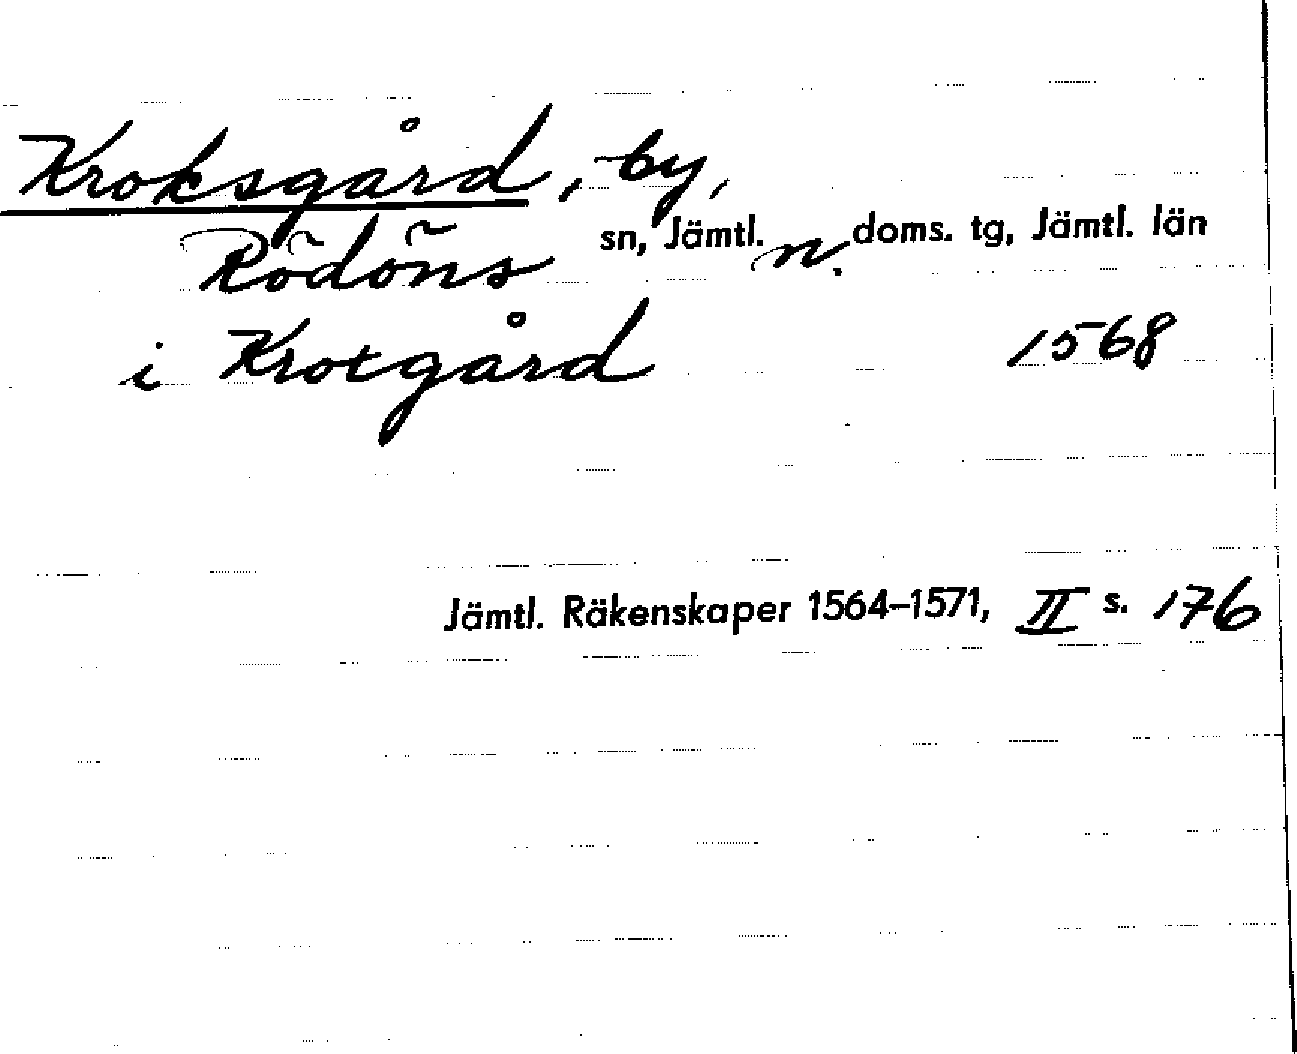 Kroksgård, by,
Rödöns sn, Jämtl. n. doms. tg, Jämtl. län
i Krotgård 1568
Jämtl. Räkenskaper 1564–1571, II s. 176